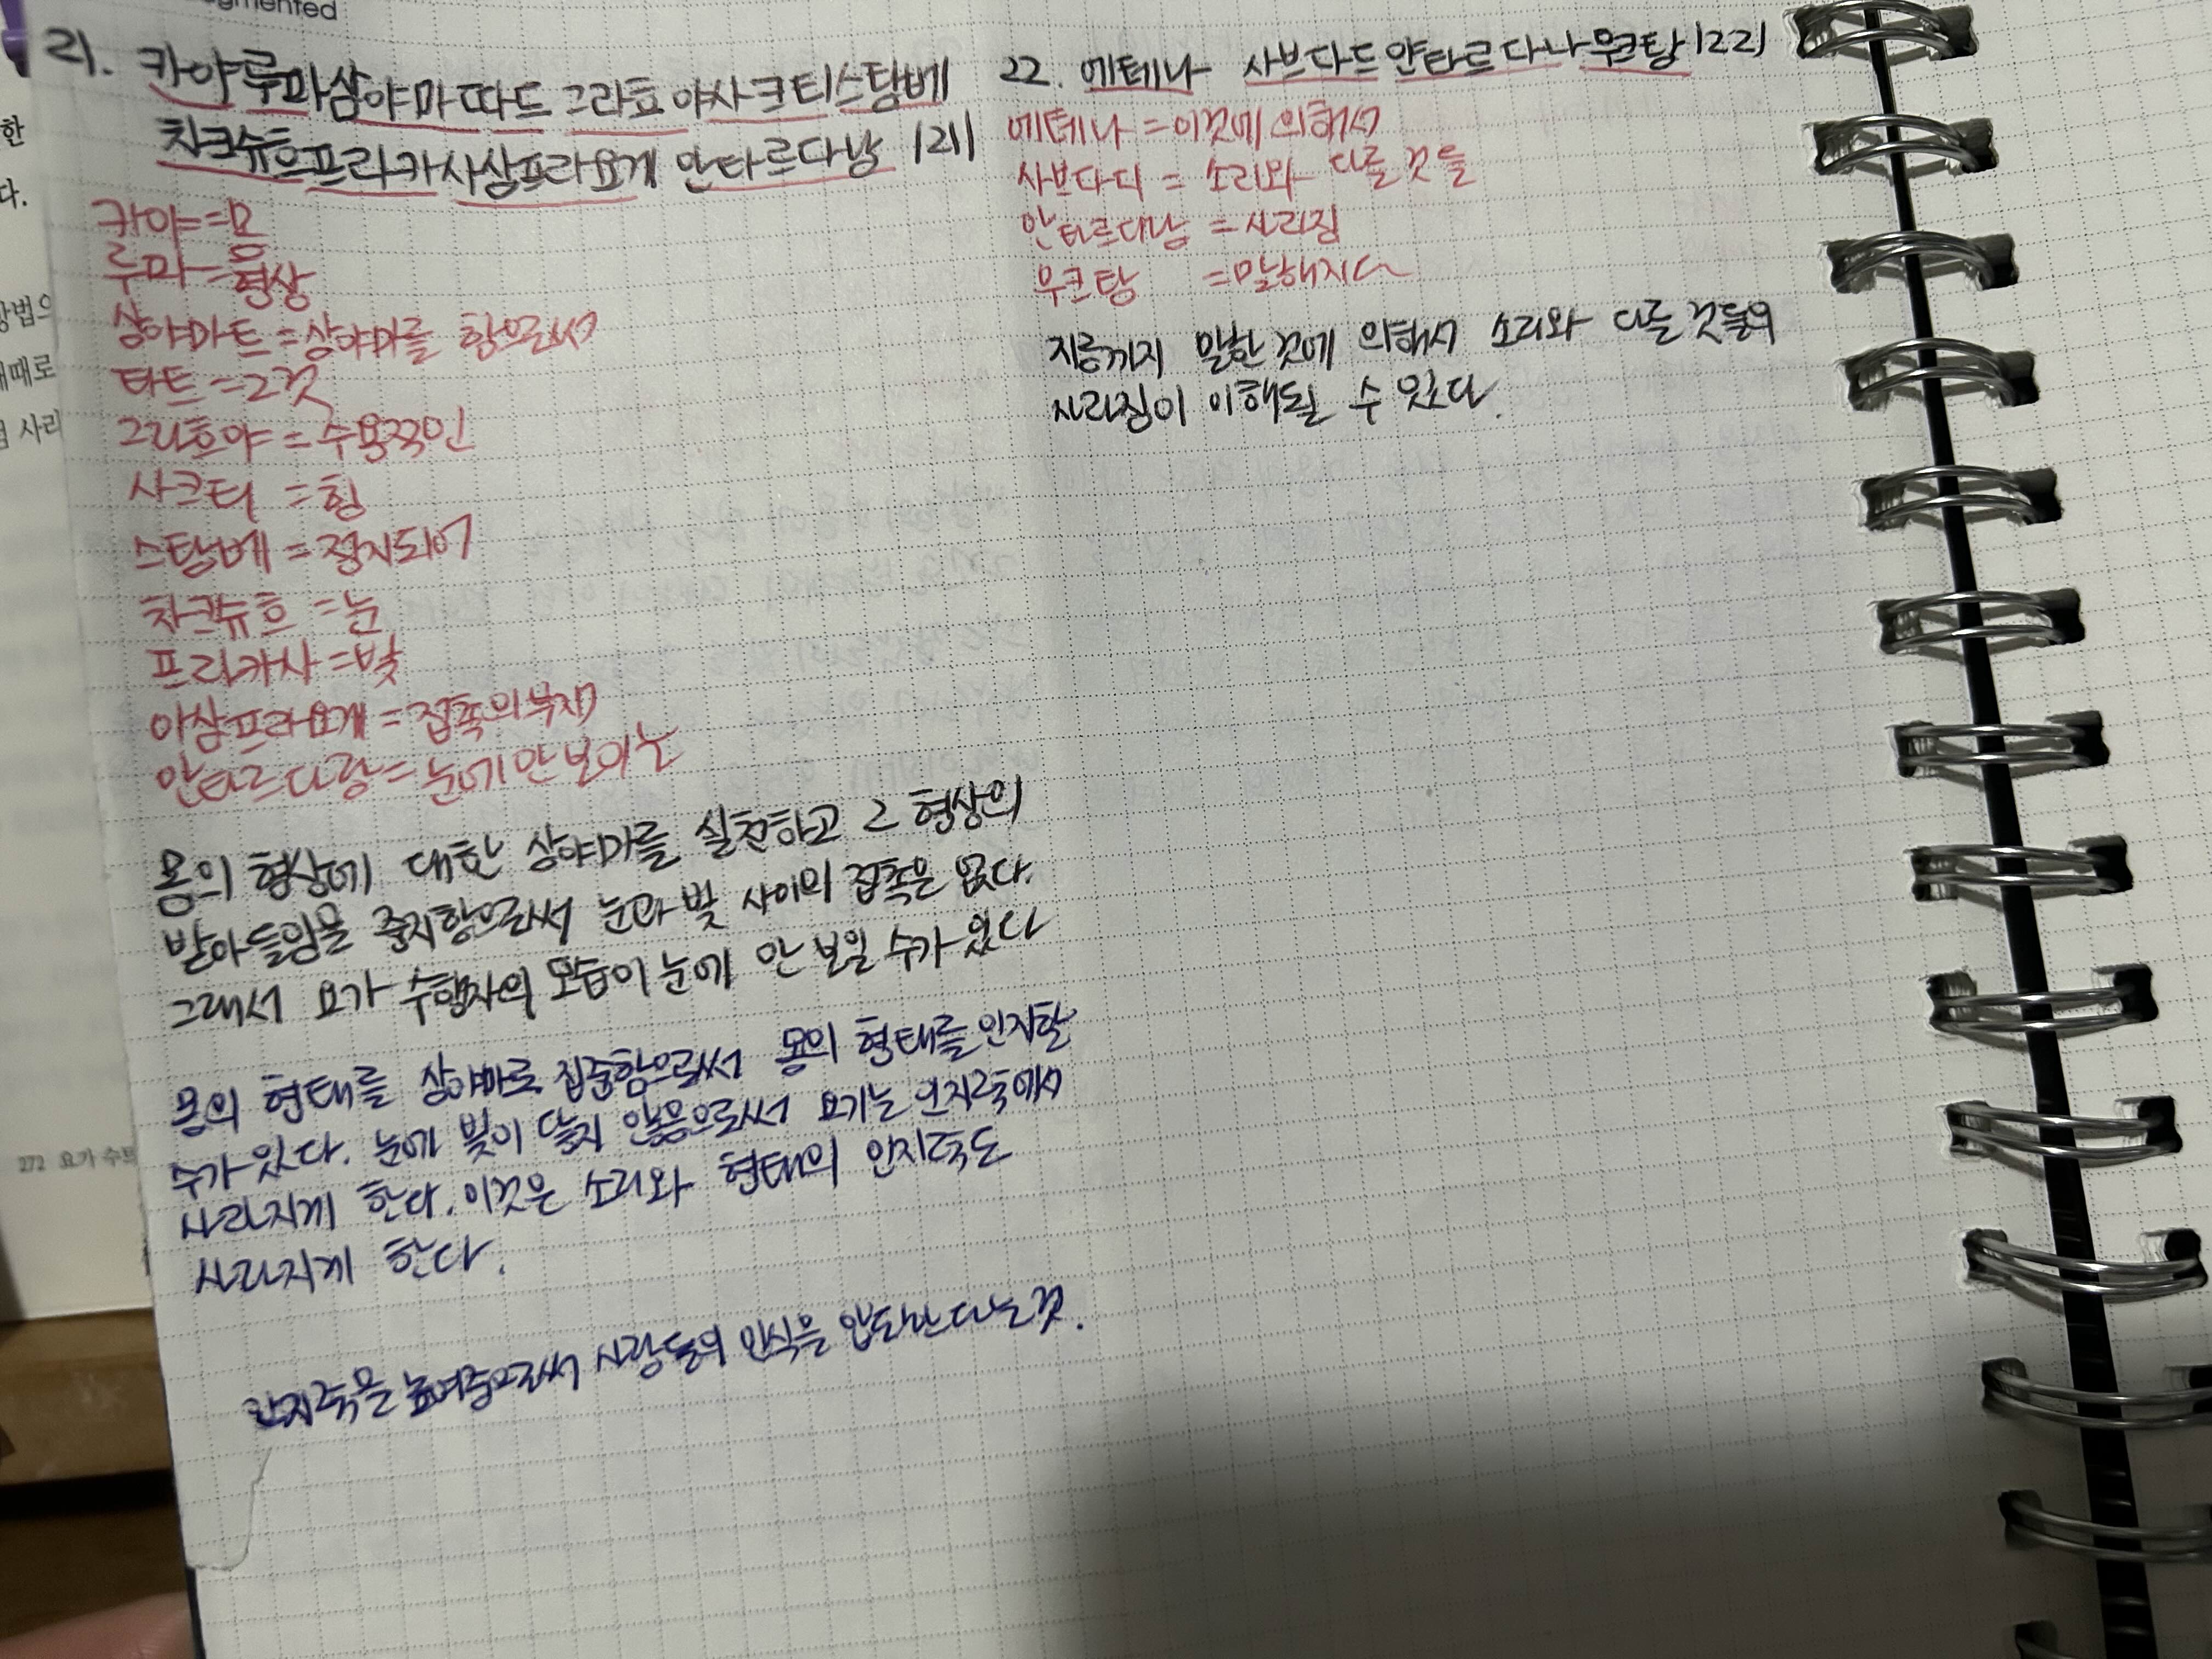 gmented
한
다.
방법으
때때로
사리
272 요가 수트
21. 카야루파삼야마따드 그라흐야사크티스탐베
차크슈흐프라카사삼프라요게 안타르다남 |21|
카야=몸
루파=형상
상야마트=상야마를 함으로써
타트=그것
그라흐야=수용적인
사크티 =힘
스탐베=정지되어
차크슈흐 =눈
프라카사=빛
아삼프라요게=접촉의부재
안타르다랑=눈에안보이는
몸의 형상에 대한 상야마를 실천하고 그 형상의
받아들임을 중지함으로써 눈과 빛 사이의 접촉은 없다.
그래서 요가 수행자의 모습이 눈에 안 보일 수가 있다
몸의 형태를 상야마로 집중함으로써 몸의 형태를 인지할
수가 있다. 눈에 빛이 닿지 않음으로써 요기는 인지력에서
사라지게 한다. 이것은 소리와 형태의 인지력도
사라지게 한다.
인지력을 높여줌으로써 사람들의 인식을 다는것.
22. 에테나 사브다드 안타르다나무크탐 |22|
에테나=이것에 의해서
사브다디 = 소리와 다른 것들
안타르다남 =사라짐
우크탐 =말해지다
지금까지 말한 것에 의해서 소리와 다른 것들의
사라짐이 이해될 수 있다.